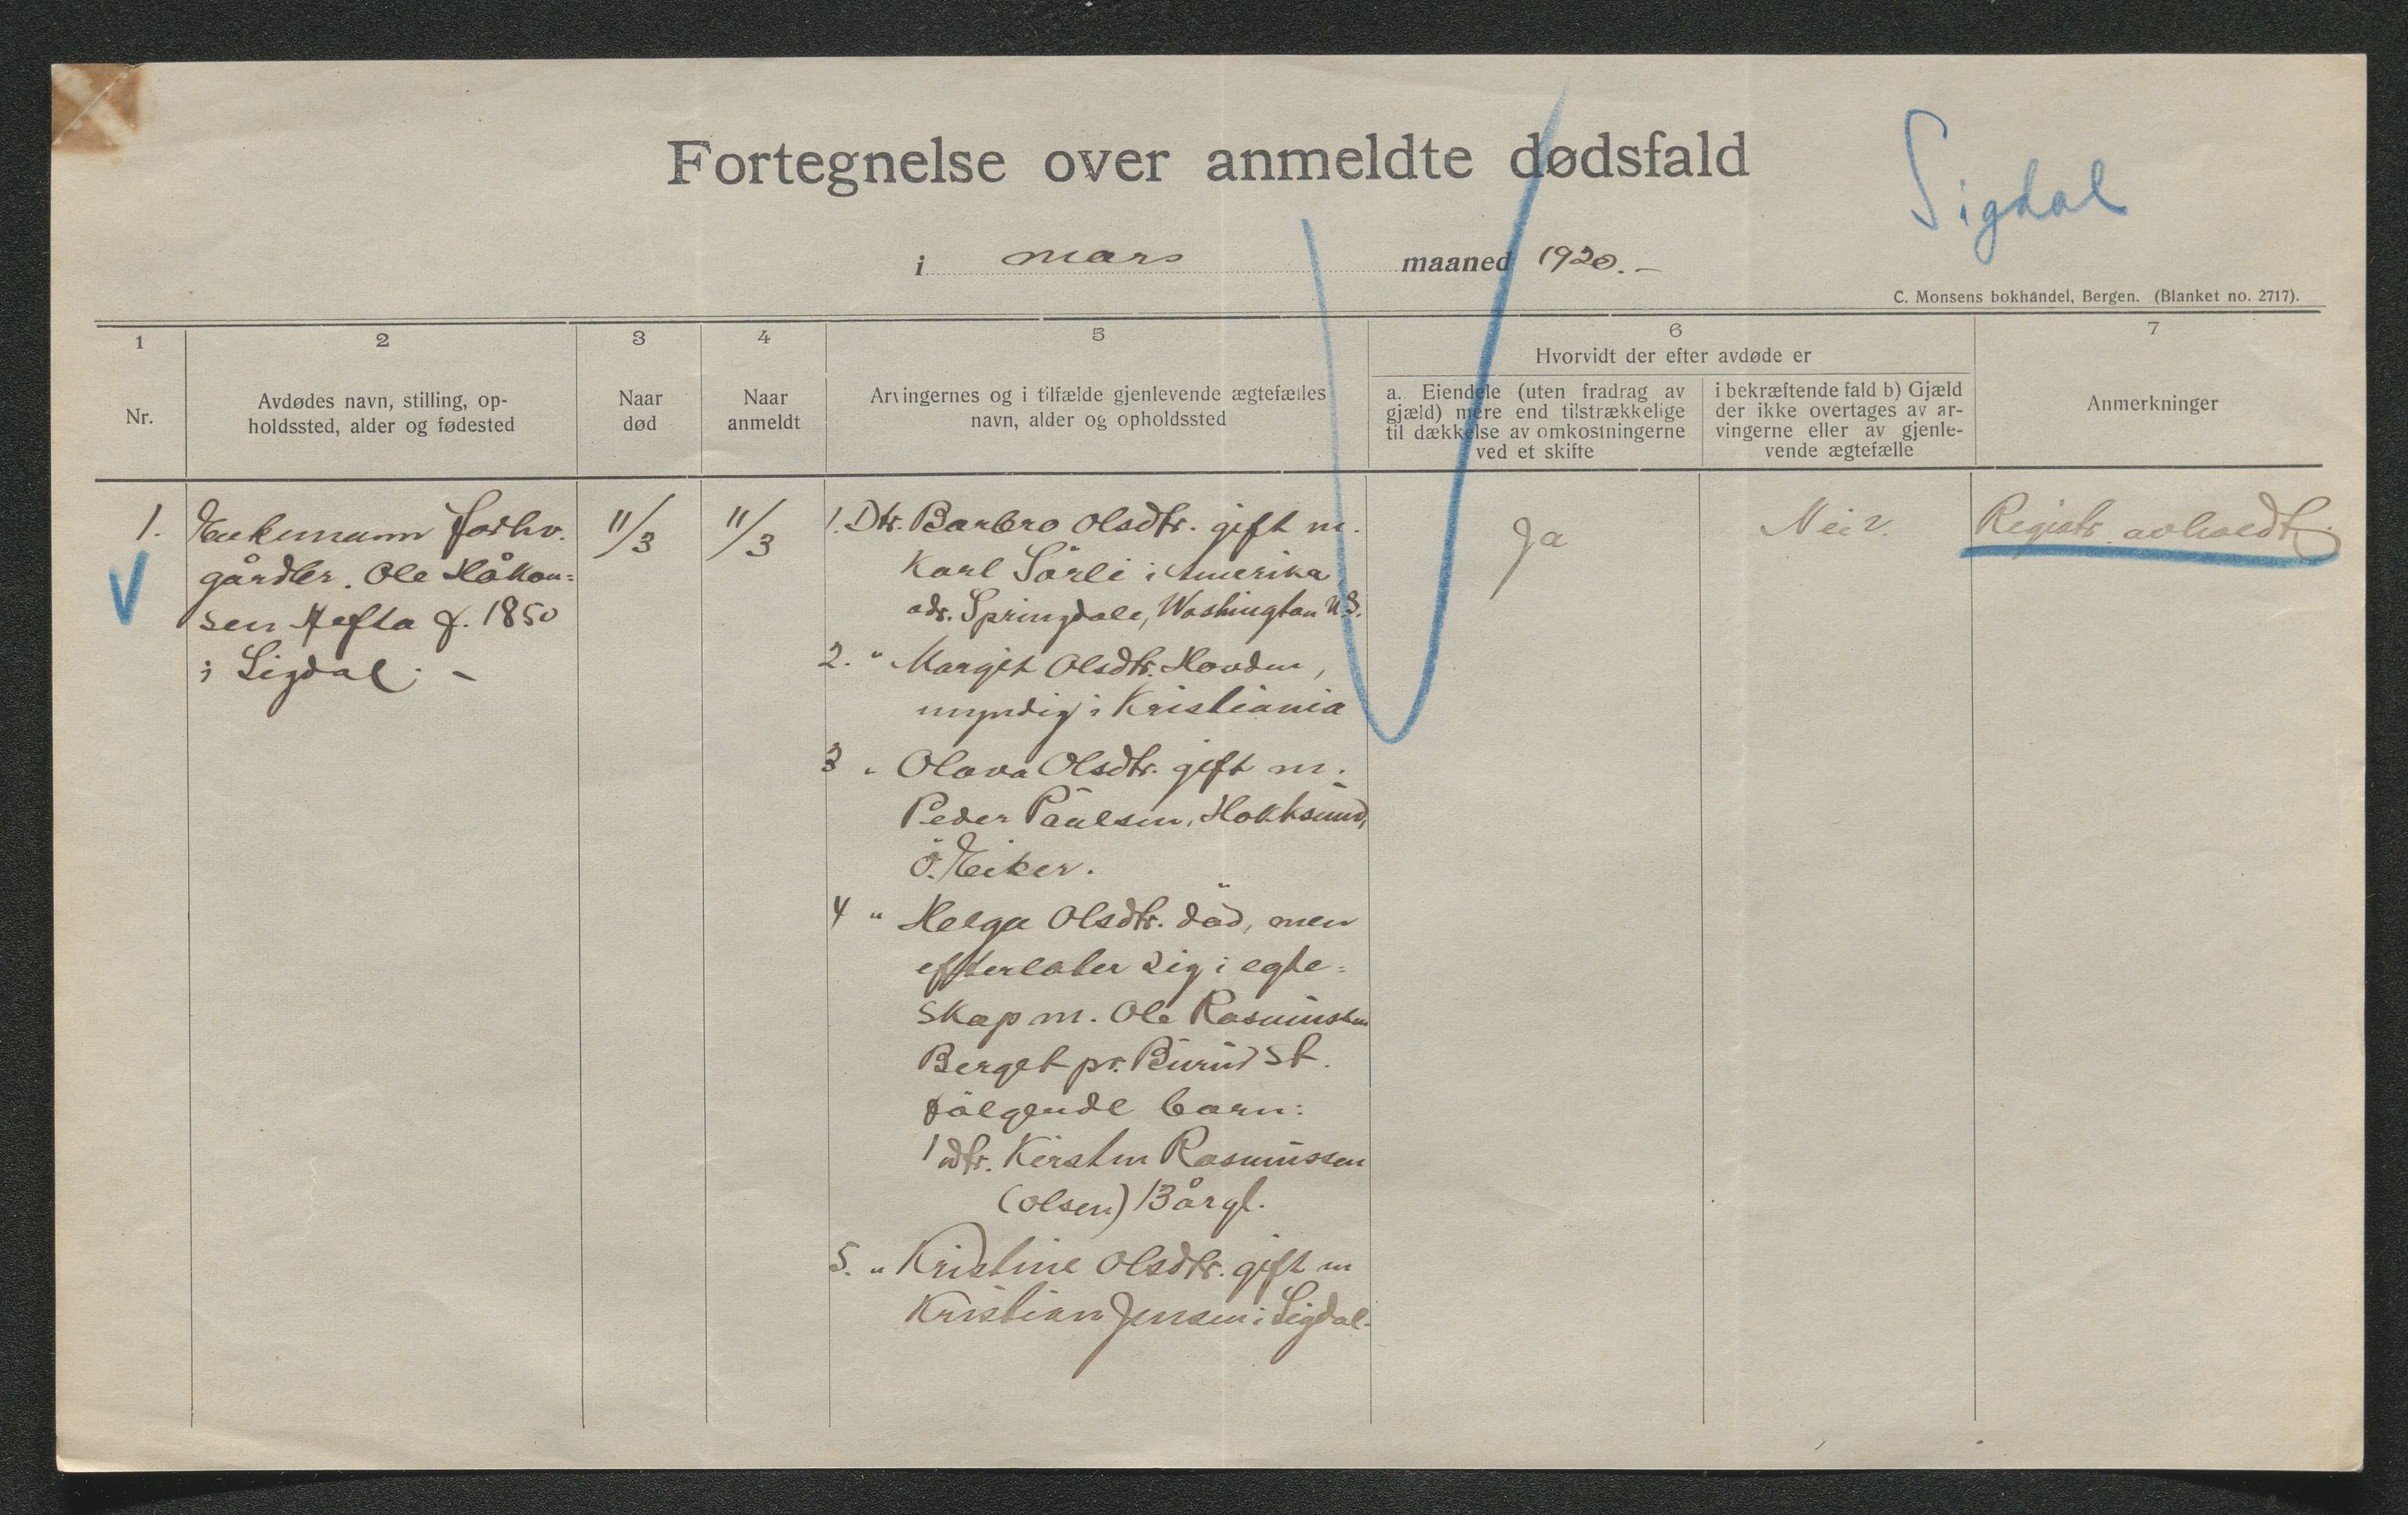 Fortegnelse over anmeldte dødsfald
Sigdal
i mars maaned 1920.-
C. Monsens bokhandel, Bergen. (Blanket no. 2717).
1
2
3
4
5
6
7
Nr.
Avdødes navn, stilling, op-
holdssted, alder og fødested
Naar
død
Naar
anmeldt
Arvingernes og i tilfælde gjenlevende ægtefælles
navn, alder og opholdssted
Hvorvidt der efter avdøde er
a. Eiendele (uten fradrag av
gjæld) mere end tilstrækkelige
til dækkelse av omkostningerne
ved et skifte
i bekræftende fald b) Gjæld
der ikke overtages av ar-
vingerne eller av gjenle-
vende ægtefælle
Anmerkninger
1.
Enkemann forhv.
gårdbr. Ole Håkon=
sen Hefta f. 1850
i Sigdal. -
11/3
11/3
1. Dtr. Barbro Olsdtr. gift m.
Karl Sörli i Amerika
adr. Springdale, Washington U.S.
2. " Margit Olsdtr. Hovden,
myndig i Kristiania
3 " Olava Olsdtr. gift m.
Peder Paulsen, Hokksund,
Ö. Eiker.
4 " Helga Olsdtr. död, men
efterlater sig i egte=
skap m. Ole Rasmussen
Berget pr. Burud St.
fölgende barn:
1 dtr. Kirsten Rasmussen
(Olsen) 13 år gl.
5. " Kristine Olsdtr. gift m
Kristian Jensen i Sigdal.
Ja
Nei.
Registr. avholdt.